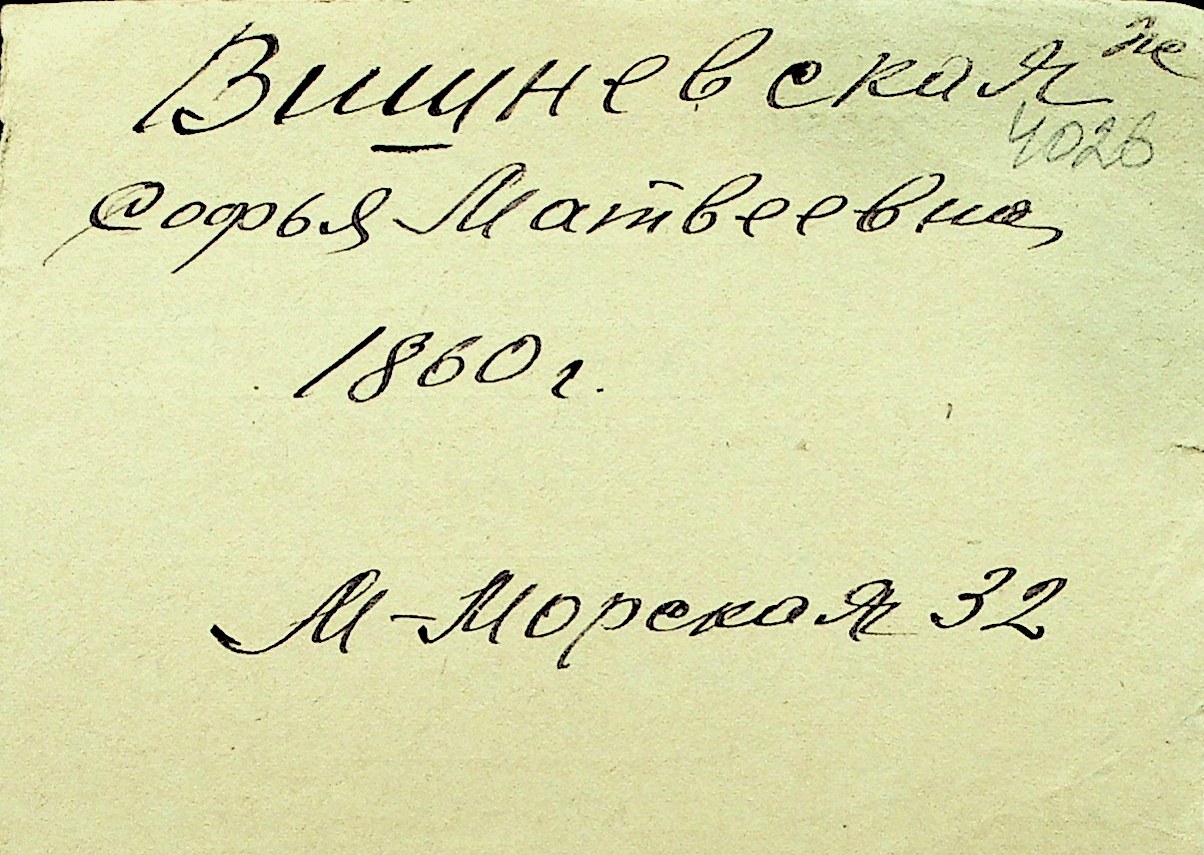 Вишневская
4026
Софья Матвеевна
1860 г.
М-Морская 32